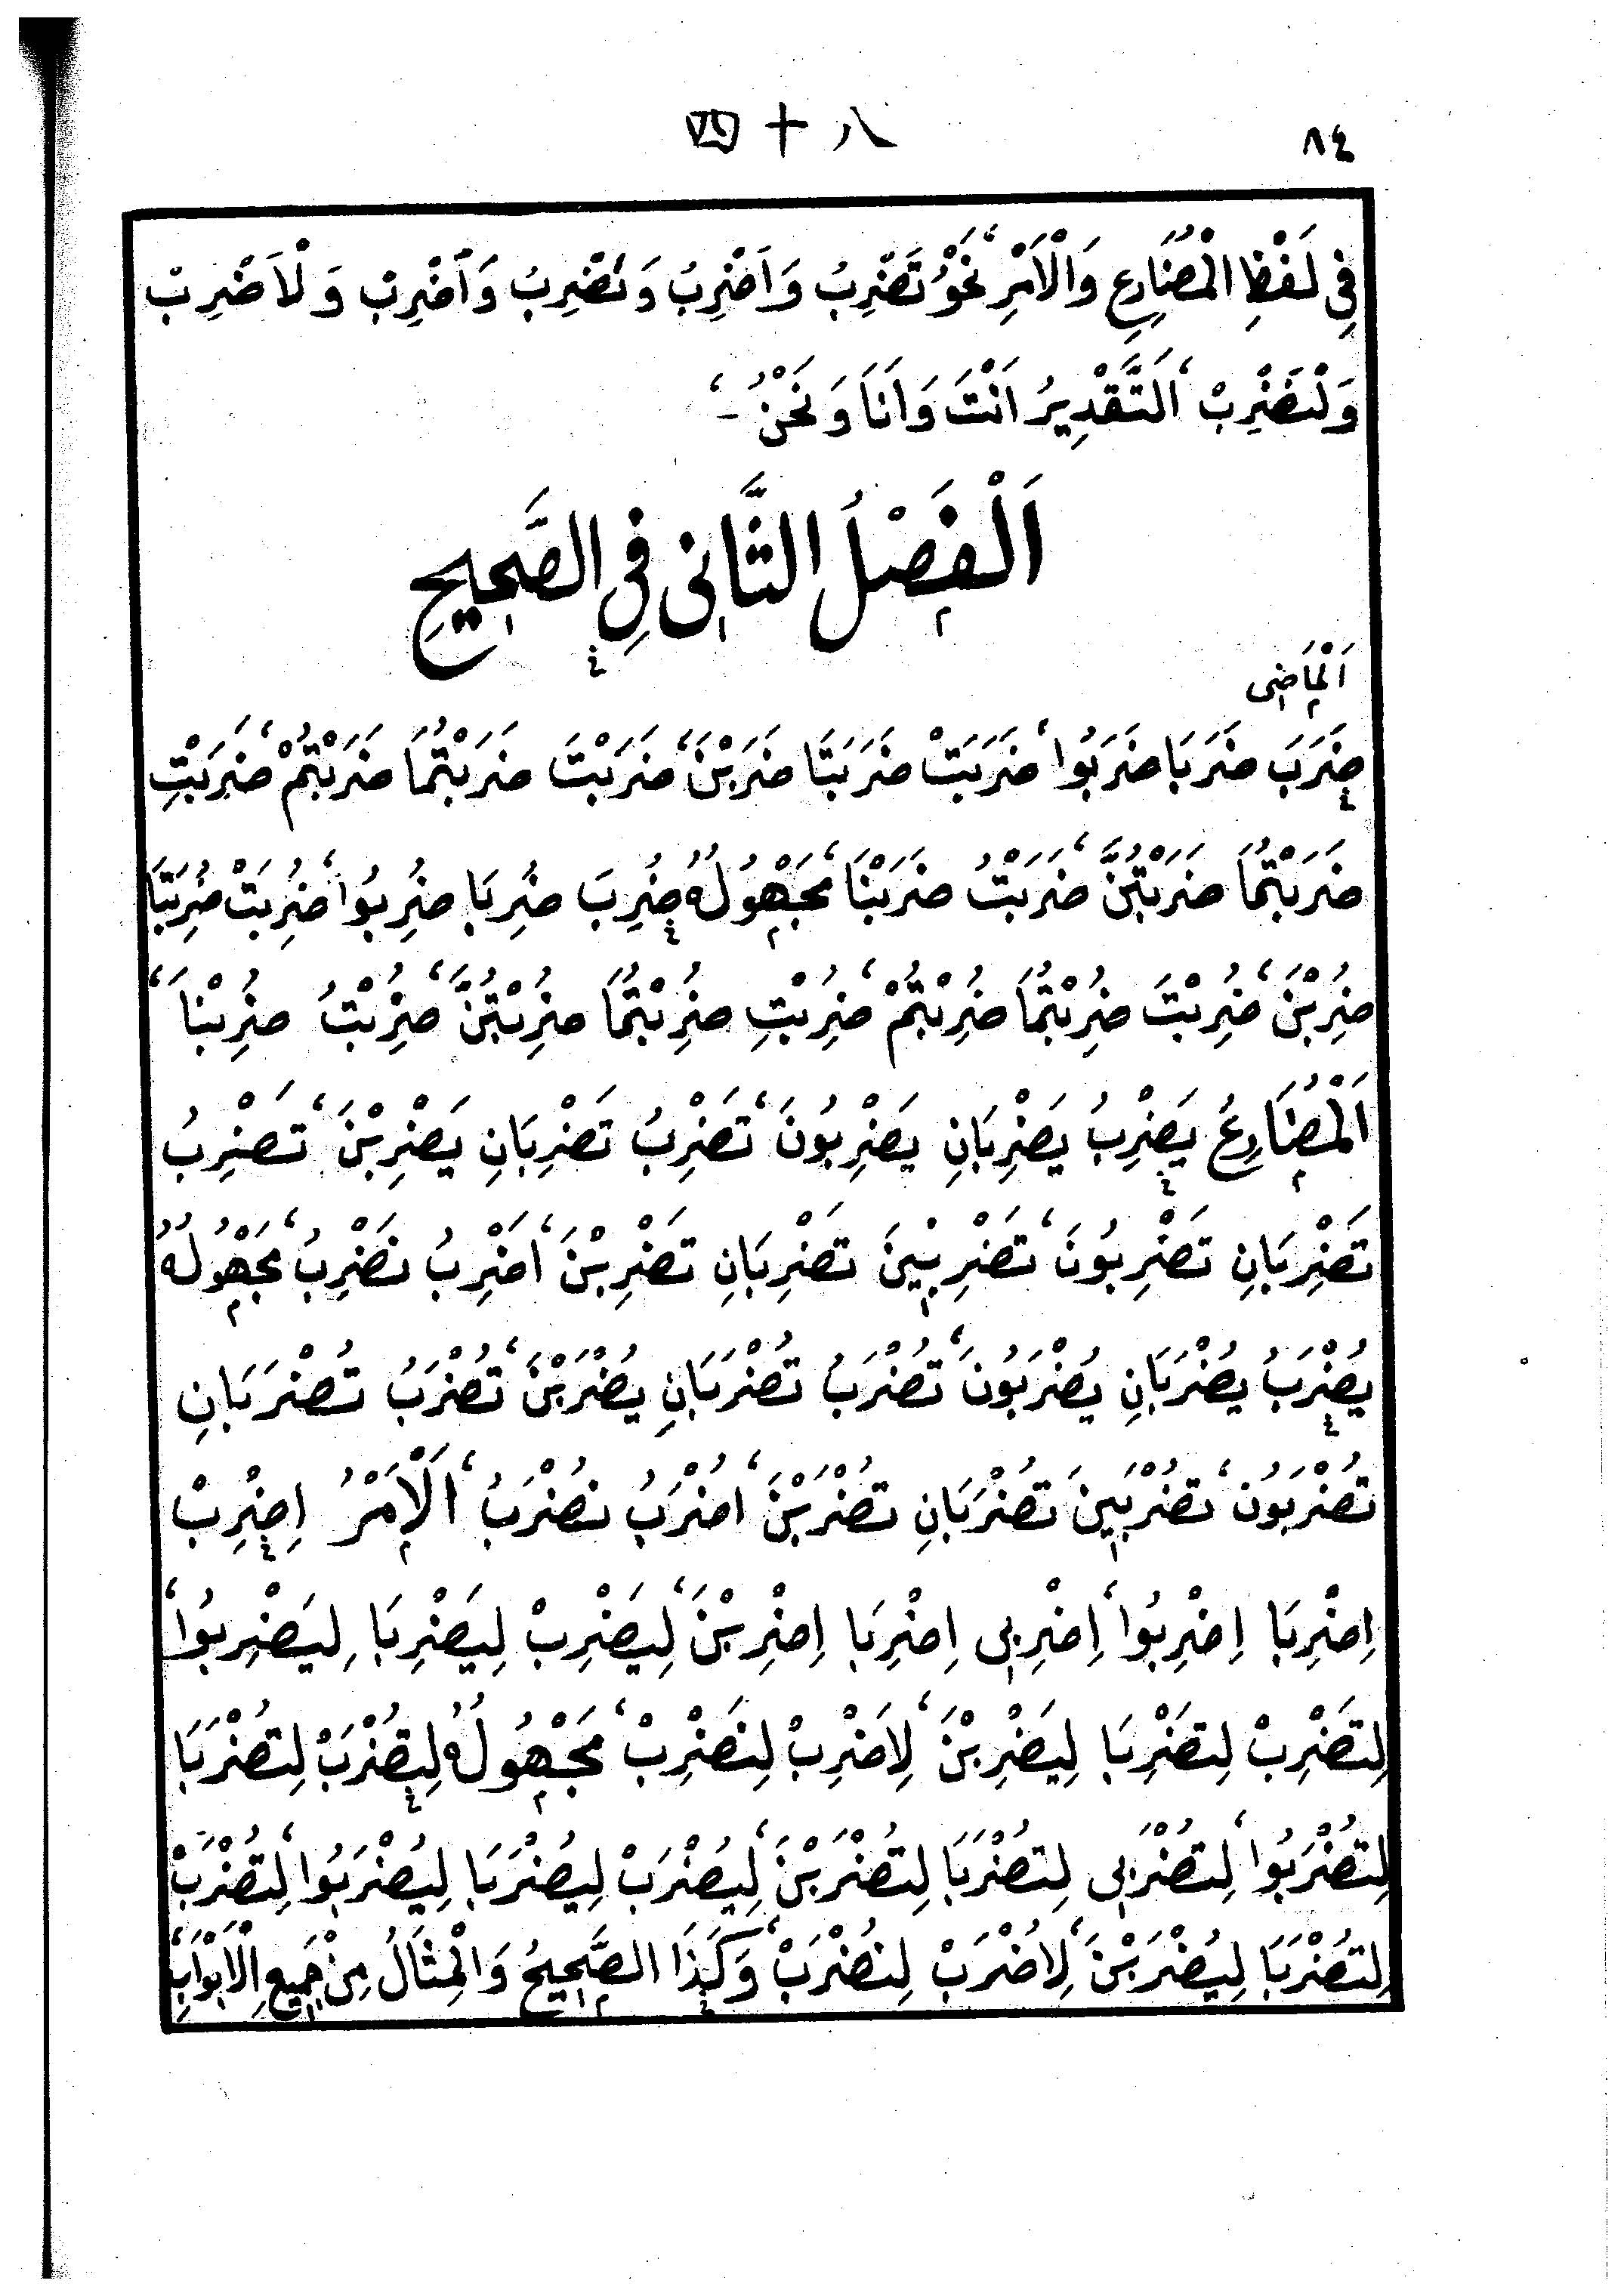 八十四 ٨٤
فِى لَفْظِ الْمُضَارِعِ وَالْاَمْرِ، نَحْوُ تَضْرِبُ وَاَضْرِبُ وَنَضْرِبُ وَاَضْرِبْ وَلْاَضْرِبْ
وَلْنَضْرِبْ، اَلتَّقْدِيرُ اَنْتَ وَاَنَا وَنَحْنُ -،
اَلْفَصْلُ الثَّانِى فِى الصَّحِيحِ
اَلْمَاضِى
ضَرَبَ ضَرَبَا ضَرَبُوا، ضَرَبَتْ ضَرَبَتَا ضَرَبْنَ، ضَرَبْتَ ضَرَبْتُمَا ضَرَبْتُمْ، ضَرَبْتِ
ضَرَبْتُمَا ضَرَبْتُنَّ، ضَرَبْتُ ضَرَبْنَا، مَجْهُولُهُ ضُرِبَ ضُرِبَا ضُرِبُوا، ضُرِبَتْ ضُرِبَتَا
ضُرِبْنَ، ضُرِبْتَ ضُرِبْتُمَا ضُرِبْتُمْ، ضُرِبْتِ ضُرِبْتُمَا ضُرِبْتُنَّ، ضُرِبْتُ ضُرِبْنَا،
اَلْمُضَارِعُ يَضْرِبُ يَضْرِبَانِ يَضْرِبُونَ، تَضْرِبُ تَضْرِبَانِ يَضْرِبْنَ، تَضْرِبُ
تَضْرِبَانِ تَضْرِبُونَ، تَضْرِبِينَ تَضْرِبَانِ تَضْرِبْنَ، اَضْرِبُ نَضْرِبُ، مَجْهُولُهُ
يُضْرَبُ يُضْرَبَانِ يُضْرَبُونَ، تُضْرَبُ تُضْرَبَانِ يُضْرَبْنَ، تُضْرَبُ تُضْرَبَانِ
تُضْرَبُونَ، تُضْرَبِينَ تُضْرَبَانِ تُضْرَبْنَ، اُضْرَبُ نُضْرَبُ، اَلْاَمْرُ اِضْرِبْ
اِضْرِبَا اِضْرِبُوا، اِضْرِبِى اِضْرِبَا اِضْرِبْنَ، لِيَضْرِبْ لِيَضْرِبَا لِيَضْرِبُوا،
لِتَضْرِبْ لِتَضْرِبَا لِيَضْرِبْنَ، لِاَضْرِبْ لِنَضْرِبْ، مَجْهُولُهُ لِتُضْرَبْ لِتُضْرَبَا
لِتُضْرَبُوا، لِتُضْرَبِى لِتُضْرَبَا لِتُضْرَبْنَ، لِيُضْرَبْ لِيُضْرَبَا لِيُضْرَبُوا، لِتُضْرَبْ
لِتُضْرَبَا لِيُضْرَبْنَ، لِاُضْرَبْ لِنُضْرَبْ، وَكَذَا الصَّحِيحُ وَالْمِثَالُ مِنْ جَمِيعِ الْاَبْوَابِ،